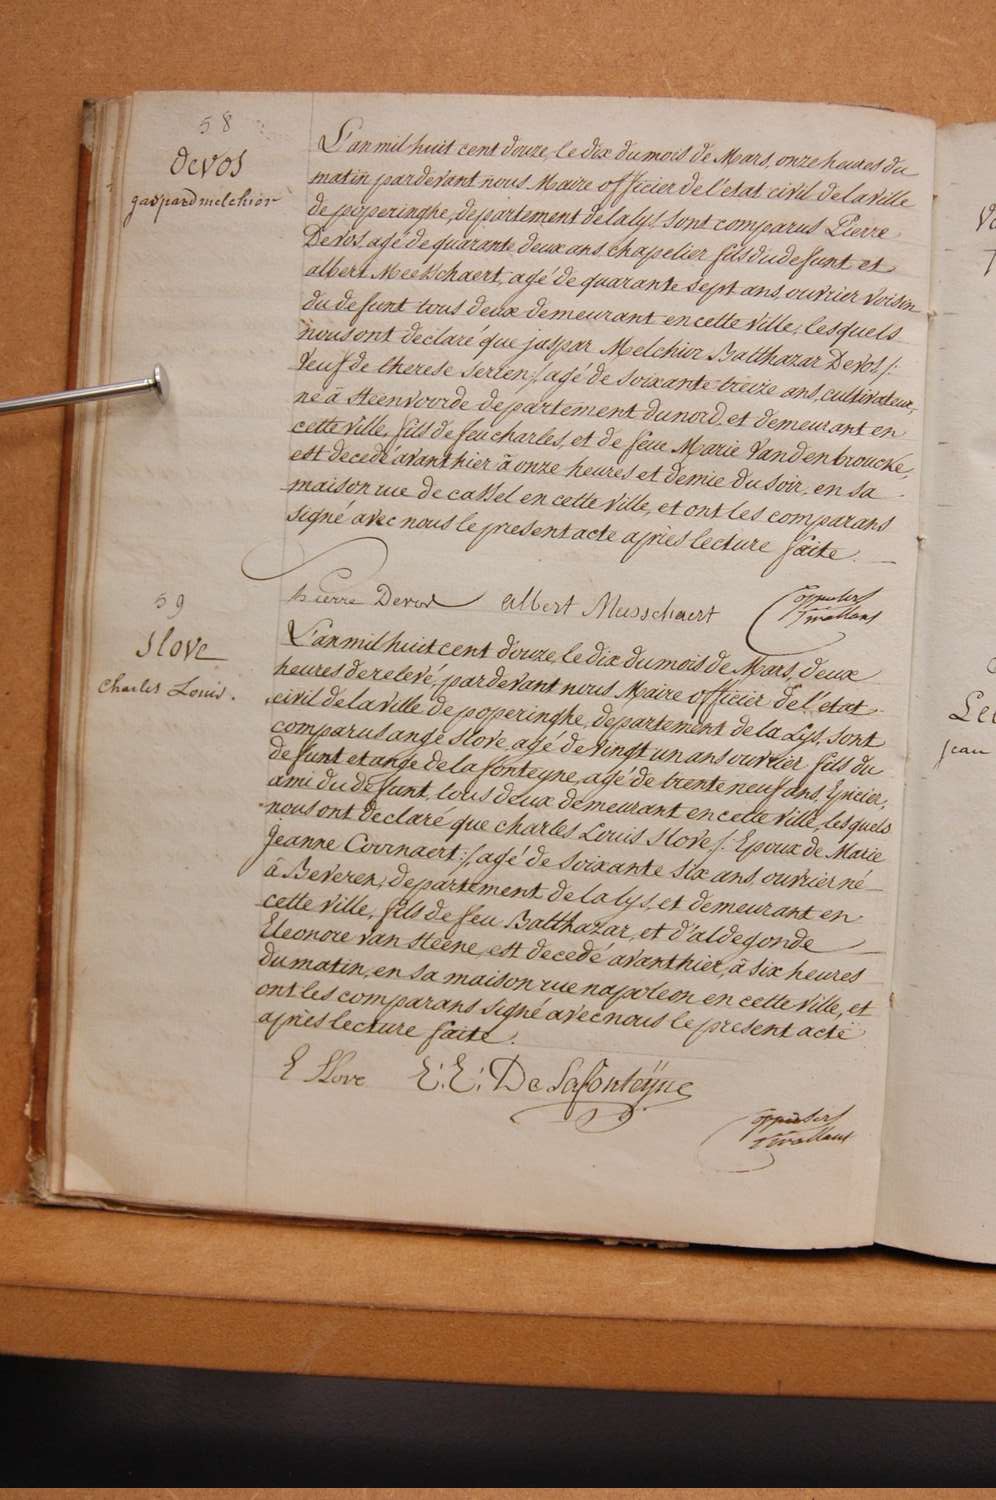 58
Devos
gaspard melchior
L'an mil huit cent douze, le dix du mois de Mars, onze heures du
matin pardevant nous Maire officier de l'etat civil de la ville
de poperinghe, departement de la lys, sont comparus Pierre
Devos, agé de quarante deux ans, chapelier fils du defunt et
albert Meesschaert, agé de quarante sept ans, ouvrier voisin
du defunt tous deux demeurant en cette ville, lesquels
nous ont declaré que jaspar Melchior Balthazar Devos /:
veuf de therese serlen :/ agé de soixante treize ans, cultivateur,
né à Steenvoorde departement du nord, et demeurant en
cette ville, fils de feu charles, et de feue Marie Vandenbroucke,
est decedé avanthier à onze heures et demie du soir, en sa
maison rue de cassel en cette ville, et ont les comparans
signé avec nous le present acte après lecture faite.
Pierre Devos albert Musschaert
59
Slove
Charles Louis.
L'an mil huit cent douze, le dix du mois de Mars, deux
heures de relevé, pardevant nous Maire officier de l'etat
civil de la ville de poperinghe, departement de la Lys, sont
comparus ange Slove, agé de vingt un ans ouvrier fils du
defunt et ange de la fonteyne, agé de trente neuf ans, Epicier,
ami du defunt, tous deux demeurant en cette ville, lesquels
nous ont declaré que charles Louis Slove /: Epoux de Marie
Jeanne Coornaert :/ agé de soixante six ans, ouvrier né
à Beveren, departement de la lys, et demeurant en
cette ville, fils de feu Balthazar, et d'aldegonde
Eleonore van Steene, est decedé avanthier, à six heures
du matin, en sa maison rue napoleon en cette ville, et
ont les comparans signé avec nous le present acte
après lecture faite.
E Slove E: E: De Lafonteÿne
jean